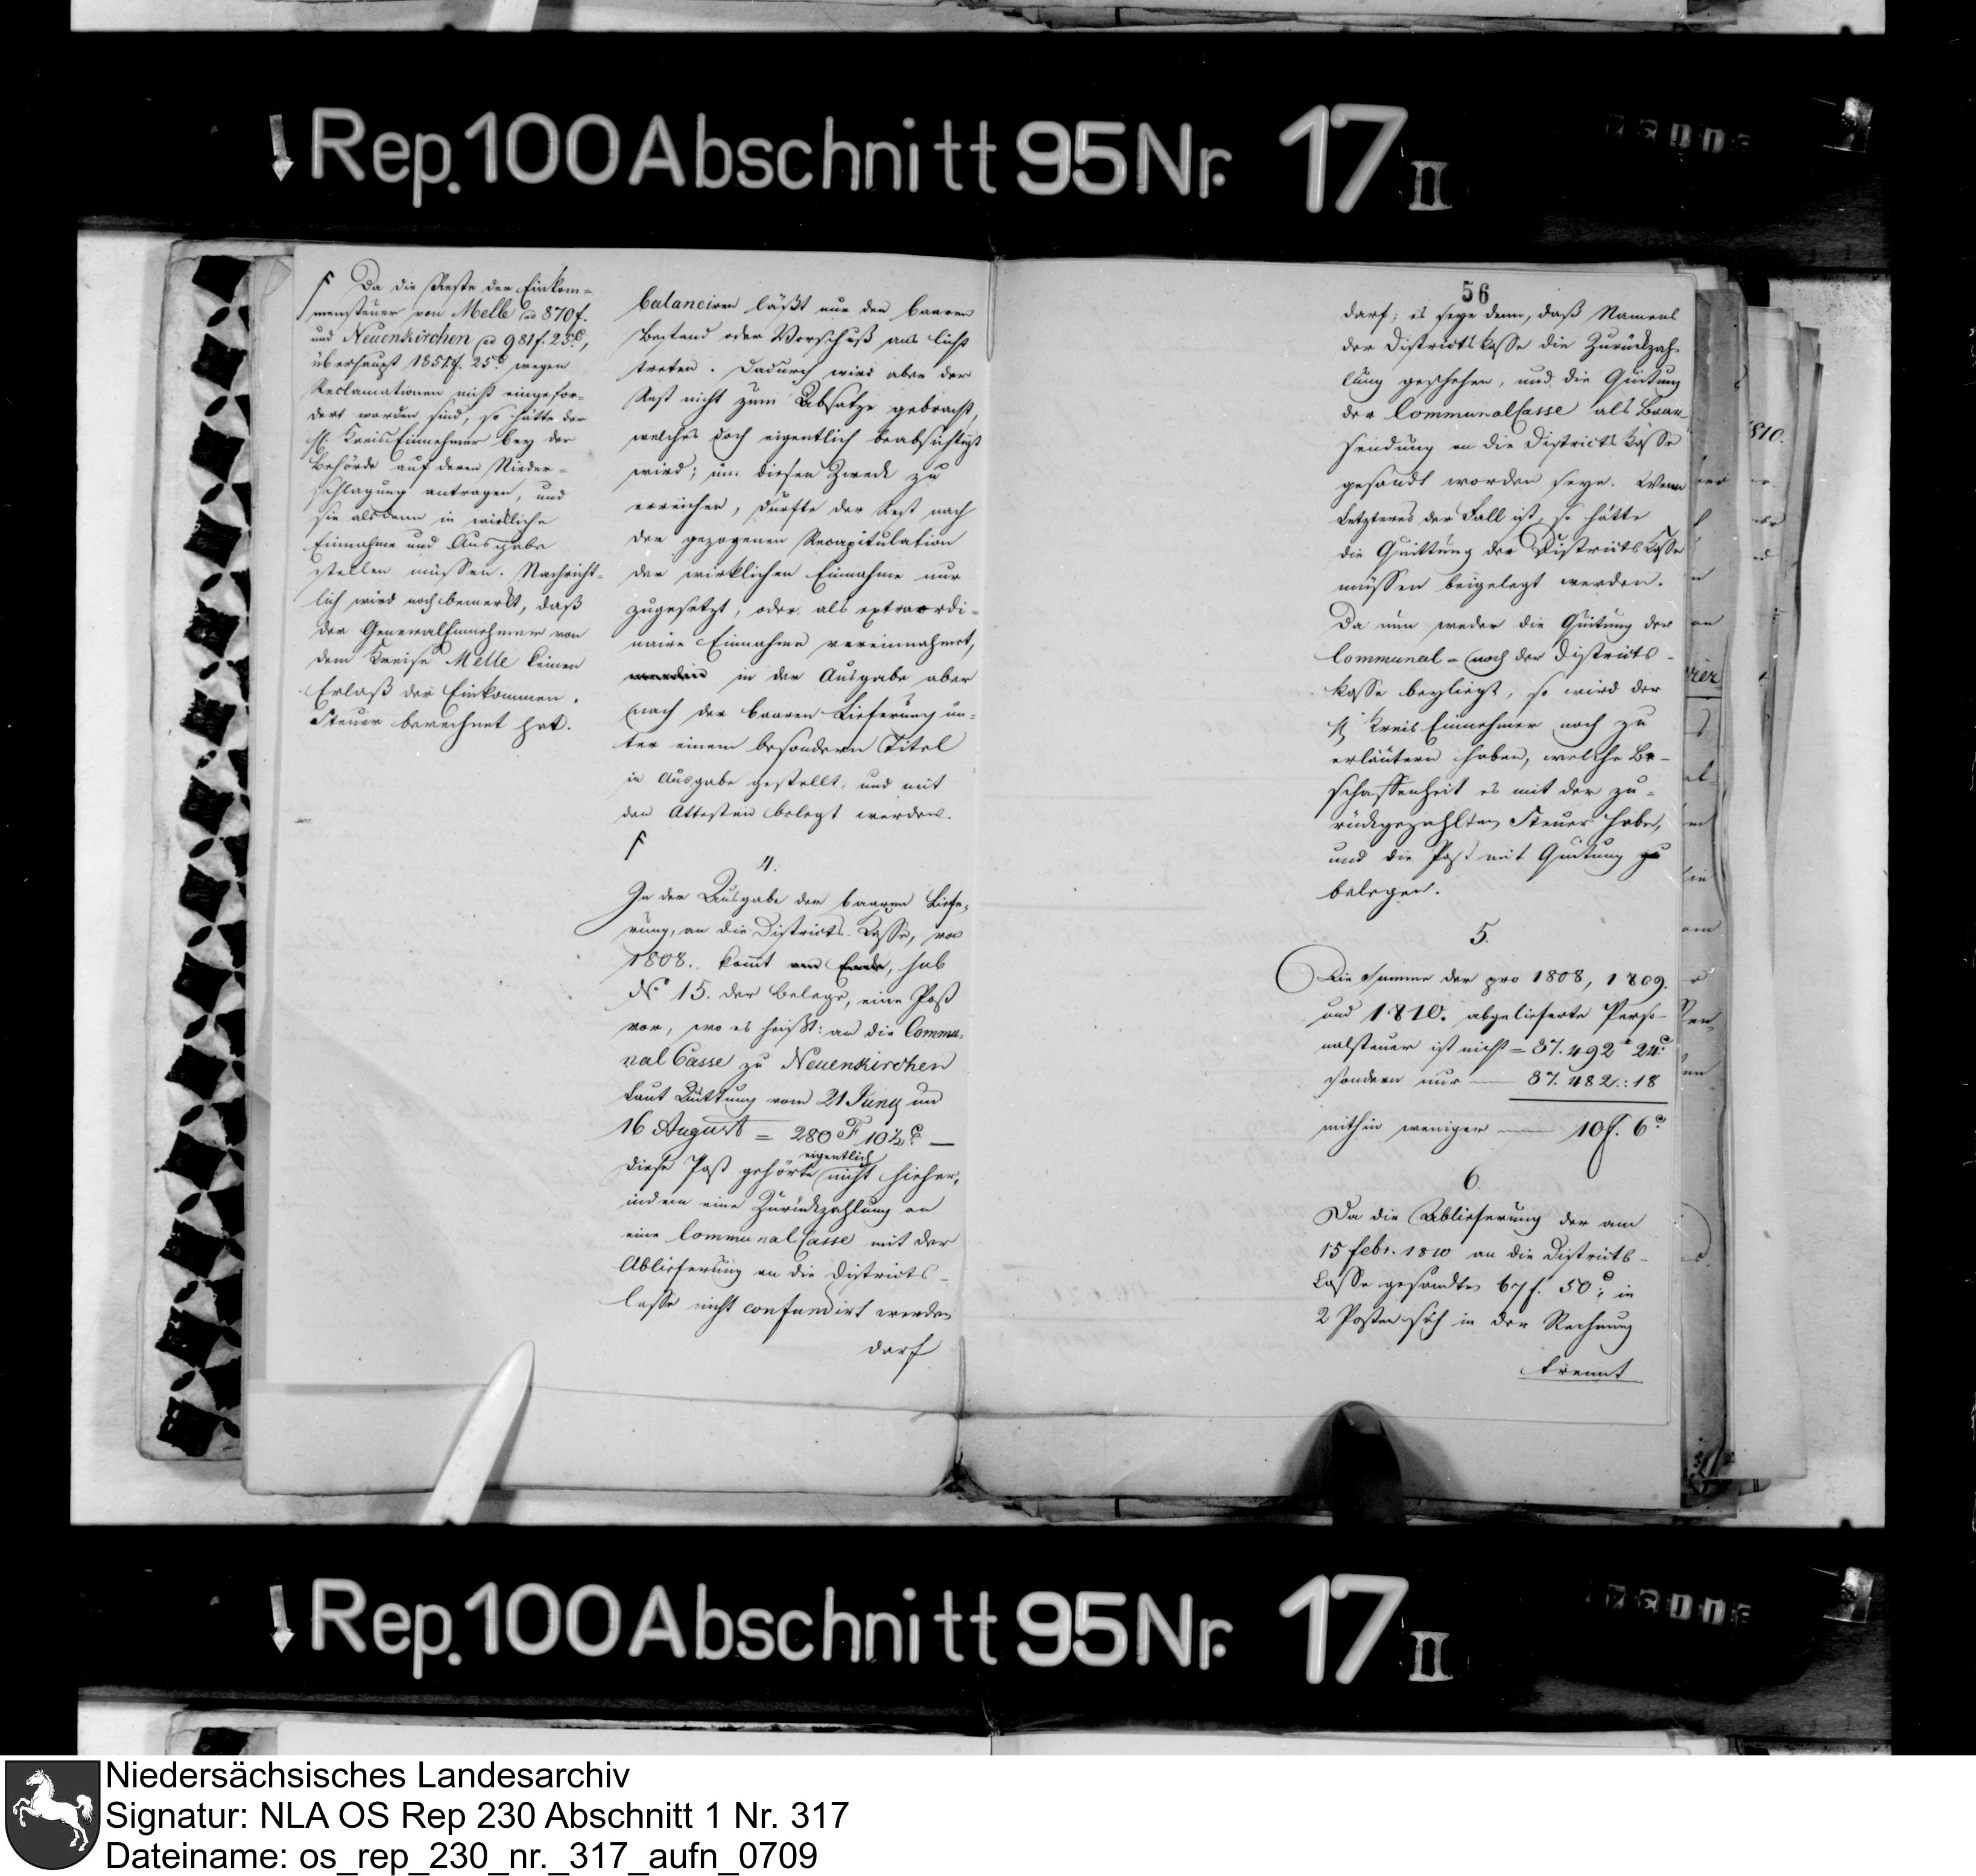 Rep. 100 Abschnitt 95 Nr. 17 II
Da die Reste der Einkom-
mensteuer von Melle ad 870 f.
und Neuenkirchen ad 981 f. 25 c,
überhaupt 1851 f. 25 c wegen
Reclamationen nicht eingefor-
dert worden sind, so hätte der
H. Kreis Einnehmer bey der
Behörde auf deren Nieder-
schlagung antragen, und
sie alsdann in wirkliche
Einnahme und Ausgabe
stellen müssen. Nachricht-
lich wird noch bemerkt, daß
der General Einnehmer von
dem Kreise Melle keinen
Erlaß der Einkommen-
Steuer berechnet hat.
balanciren läßt nur den baaren
Bestand oder Vorschuß ans Licht
treten. Dadurch wird aber der
Rest nicht zum Absatze gebracht,
welches doch eigentlich beabsichtigt
wird; um diesen Zweck zu
erreichen, dürfte der Rest nach
der gezogenen Recapitulation
der wirklichen Einnahme nur
zugesetzt, oder als extraordi-
naire Einnahme vereinnahmt,
in der Ausgabe aber
nach der baaren Lieferung un-
ter einem besondern Titel
in Ausgabe gestellt, und mit
den Attesten belegt werden.
4.
In der Ausgabe der baaren Liefe-
rung, an die Districts-Casse, von
1808. kommt am Ende, sub
No 15. der Belege, eine Post
vor, wo es heißt: an die Commu-
nal Casse zu Neuenkirchen
Laut Quittung vom 21 Juny und
16 August = 280 F 10½ c —
diese Post gehörte eigentlich nicht hieher,
indem eine Zurückzahlung an
eine Communal Casse mit der
Ablieferung an die Districts-
Casse nicht confundirt werden
darf
56
darf; es seye denn, daß Namens
der Districtskasse die Zurückzah-
lung geschehen, und die Quitung
der Communal Casse als Baar
sendung an die Districts Kasse
gesandt worden seye. Wenn
Letzteres der Fall ist, so hätte
die Quittung der Districts Kasse
müssen beigelegt werden.
Da nun weder die Quitung der
Communal- noch der Districts-
kasse beyliegt, so wird der
H Kreis Einnehmer noch zu
erläutern haben, welche Be-
schaffenheit es mit der zu-
rückgezahlten Steuer habe,
und die Post mit Quitung zu
belegen.
5.
Die Summe der pro 1808, 1809.
und 1810. abgelieferte Perso-
nalsteuer ist nicht = 87.492 f 24 c
sondern nur — 87.482 : 18
mithin weniger — 10 f. 6 c
6.
Da die Ablieferung der am
15 Febr. 1810 an die Districts-
Casse gesandten 67 f. 50 c, in
2 Posten sich in der Rechnung
trennt
1810.
Rep. 100 Abschnitt 95 Nr. 17 II
Niedersächsisches Landesarchiv
Signatur: NLA OS Rep 230 Abschnitt 1 Nr. 317
Dateiname: os_rep_230_nr._317_aufn_0709